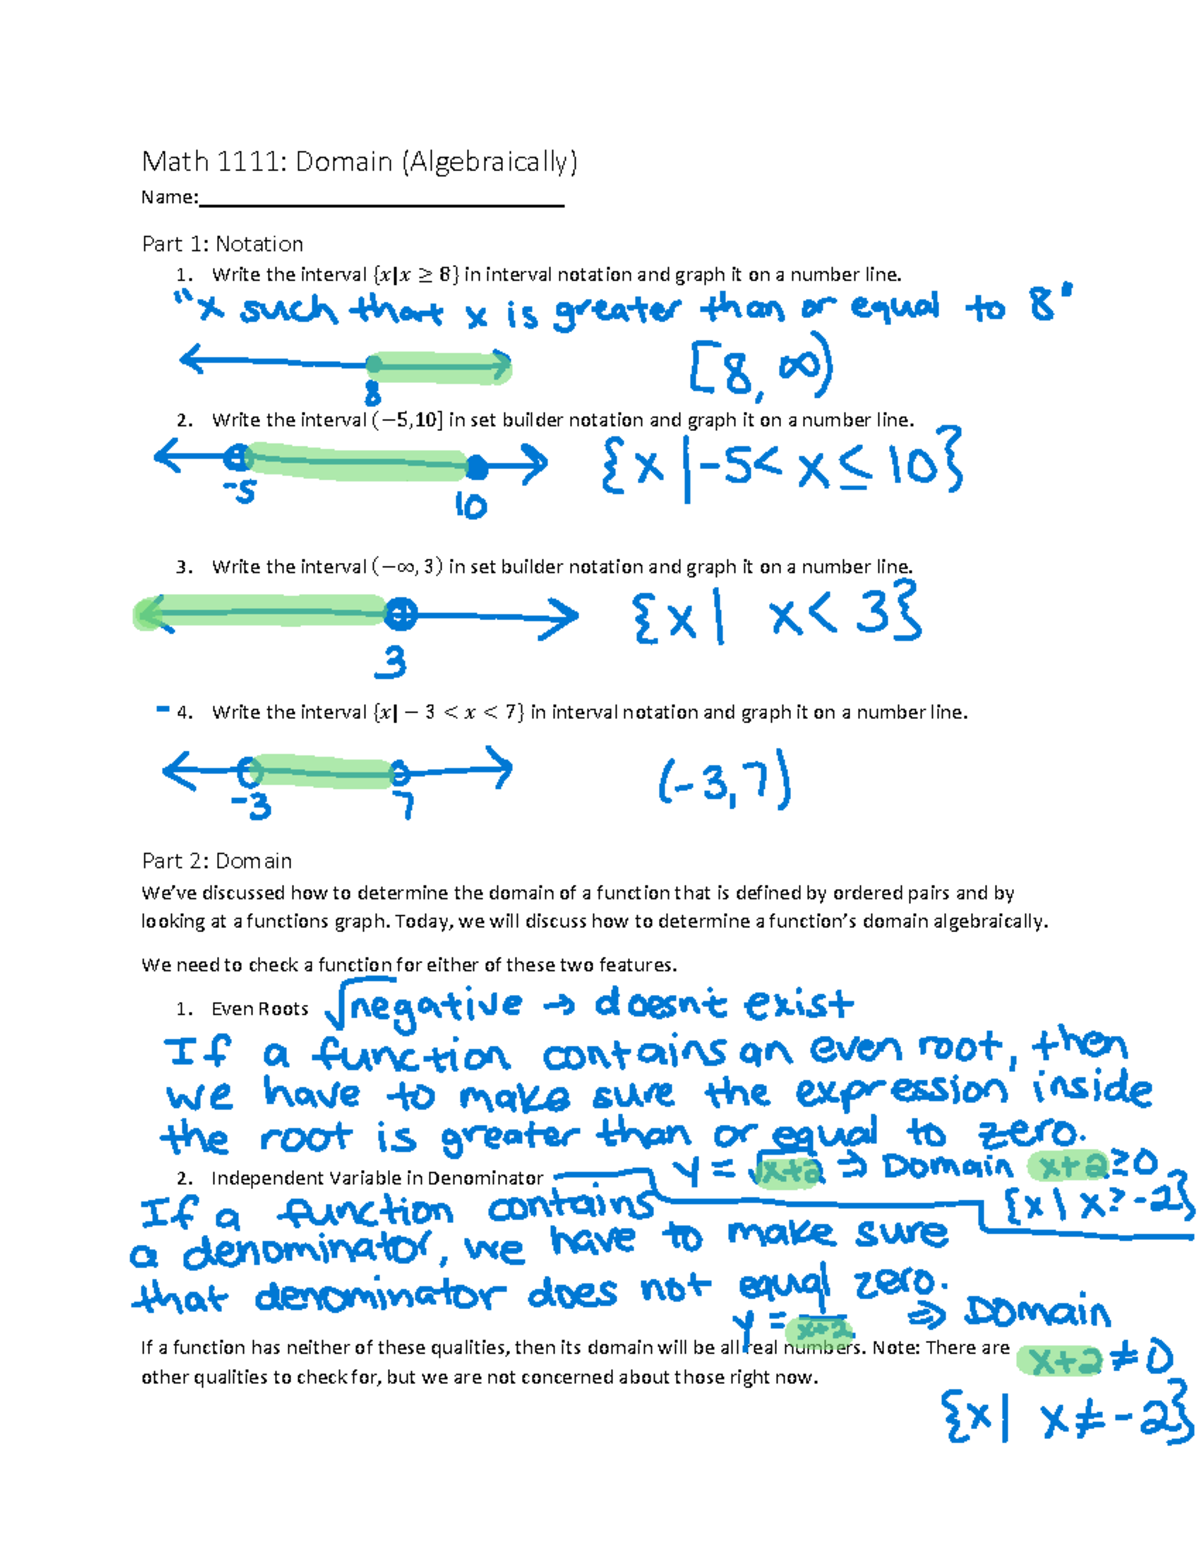 Math 1111: Domain (Algebraically)
Name:
Part 1: Notation
1. Write the interval {x|x ≥ 8} in interval notation and graph it on a number line.
"x such that x is greater than or equal to 8"
8
[8, ∞)
2. Write the interval (−5,10] in set builder notation and graph it on a number line.
-5
10
{x | -5 < x ≤ 10}
3. Write the interval (−∞, 3) in set builder notation and graph it on a number line.
3
{x | x < 3}
- 4. Write the interval {x| − 3 < x < 7} in interval notation and graph it on a number line.
-3
7
(-3, 7)
Part 2: Domain
We've discussed how to determine the domain of a function that is defined by ordered pairs and by
looking at a functions graph. Today, we will discuss how to determine a function's domain algebraically.
We need to check a function for either of these two features.
1. Even Roots √negative → doesn't exist
If a function contains an even root, then
we have to make sure the expression inside
the root is greater than or equal to zero.
y = √x+2 ⇒ Domain x+2 ≥ 0
{x | x ≥ -2}
2. Independent Variable in Denominator
If a function contains
a denominator, we have to make sure
that denominator does not equal zero.
y = 1/x+2 ⇒ Domain
x+2 ≠ 0
{x | x ≠ -2}
If a function has neither of these qualities, then its domain will be all real numbers. Note: There are
other qualities to check for, but we are not concerned about those right now.